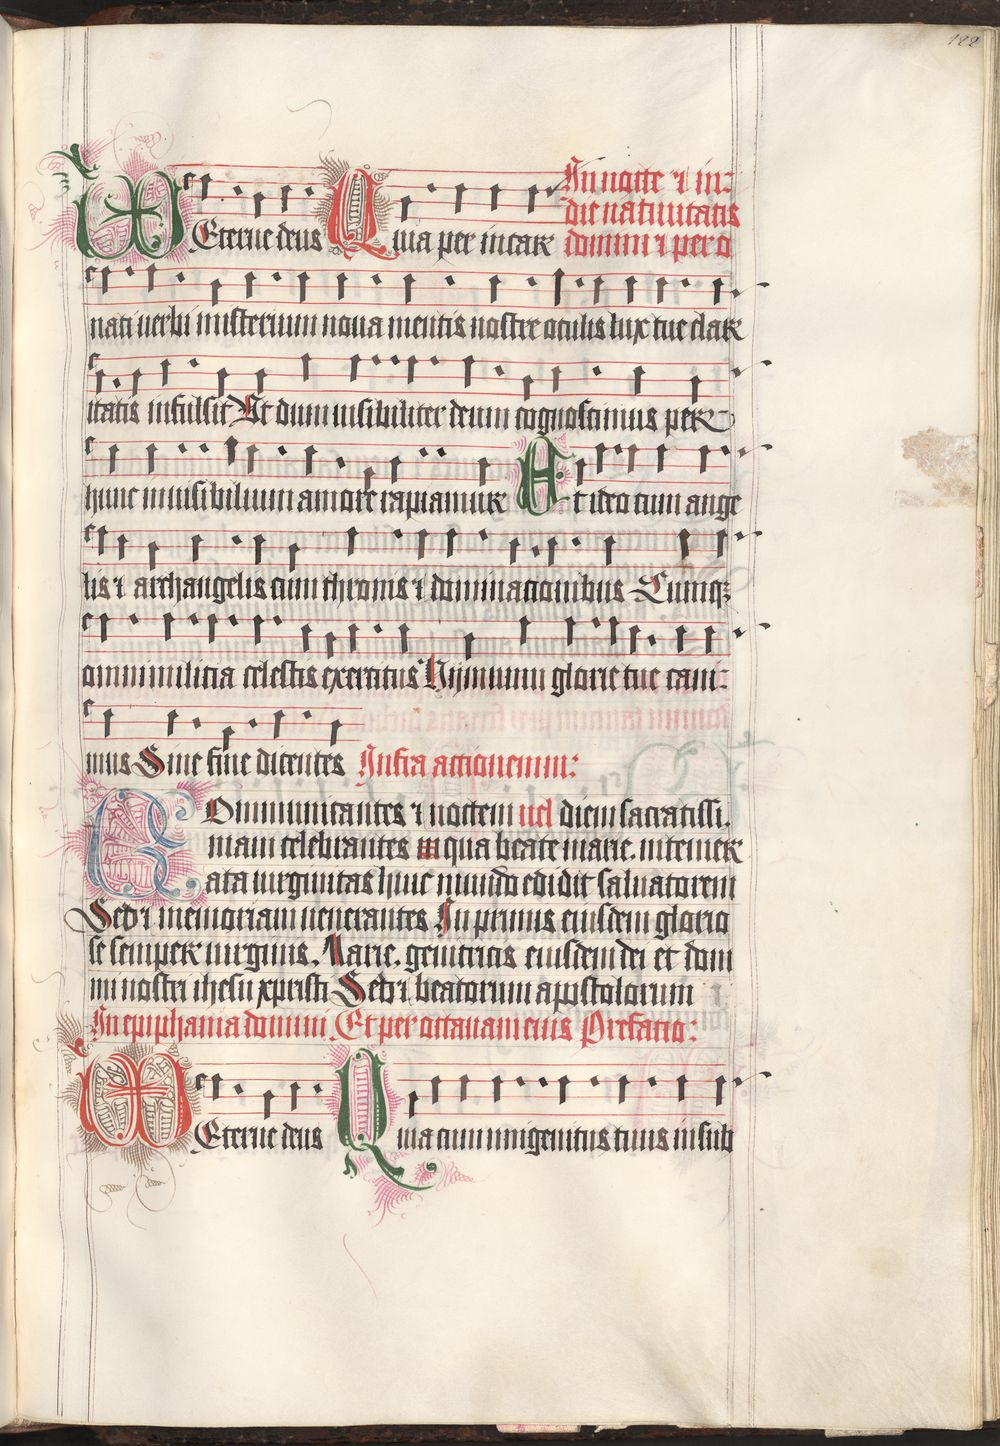 122
In nocte ⁊ in:
die natiuitatis
Eterne deus Quia per incar domini ⁊ per o
nati uerbi misterium noua mentis nostre oculis lux tue clar
itatis infulsit Ut dum uisibiliter deum cognoscimus per
hunc inuisibilium amore rapiamur Et ideo cum ange
lis ⁊ archangelis cum thronis ⁊ dominacionibus Cumqꝫ
omni milicia celestis exercitus Hijmnum glorie tue cani:
mus Sine fine dicentes Infra accionemm:
Communicantes ⁊ noctem uel diem sacratissi.
mam celebrantes in qua beate marie. intemer
ata uirginitas huic mundo edidit saluatorem
Sed ⁊ memoriam uenerantes In primis eiusdem glorio
se semper uirginis. Marie. genitricis eiusdem dei et dom
ini nostri ihesu xpristi Sed ⁊ beatorum apostolorum
In epiphania domini Et per octauam eius Prefacio:
Eterne deus Quia cum unigenitus tuus in sub